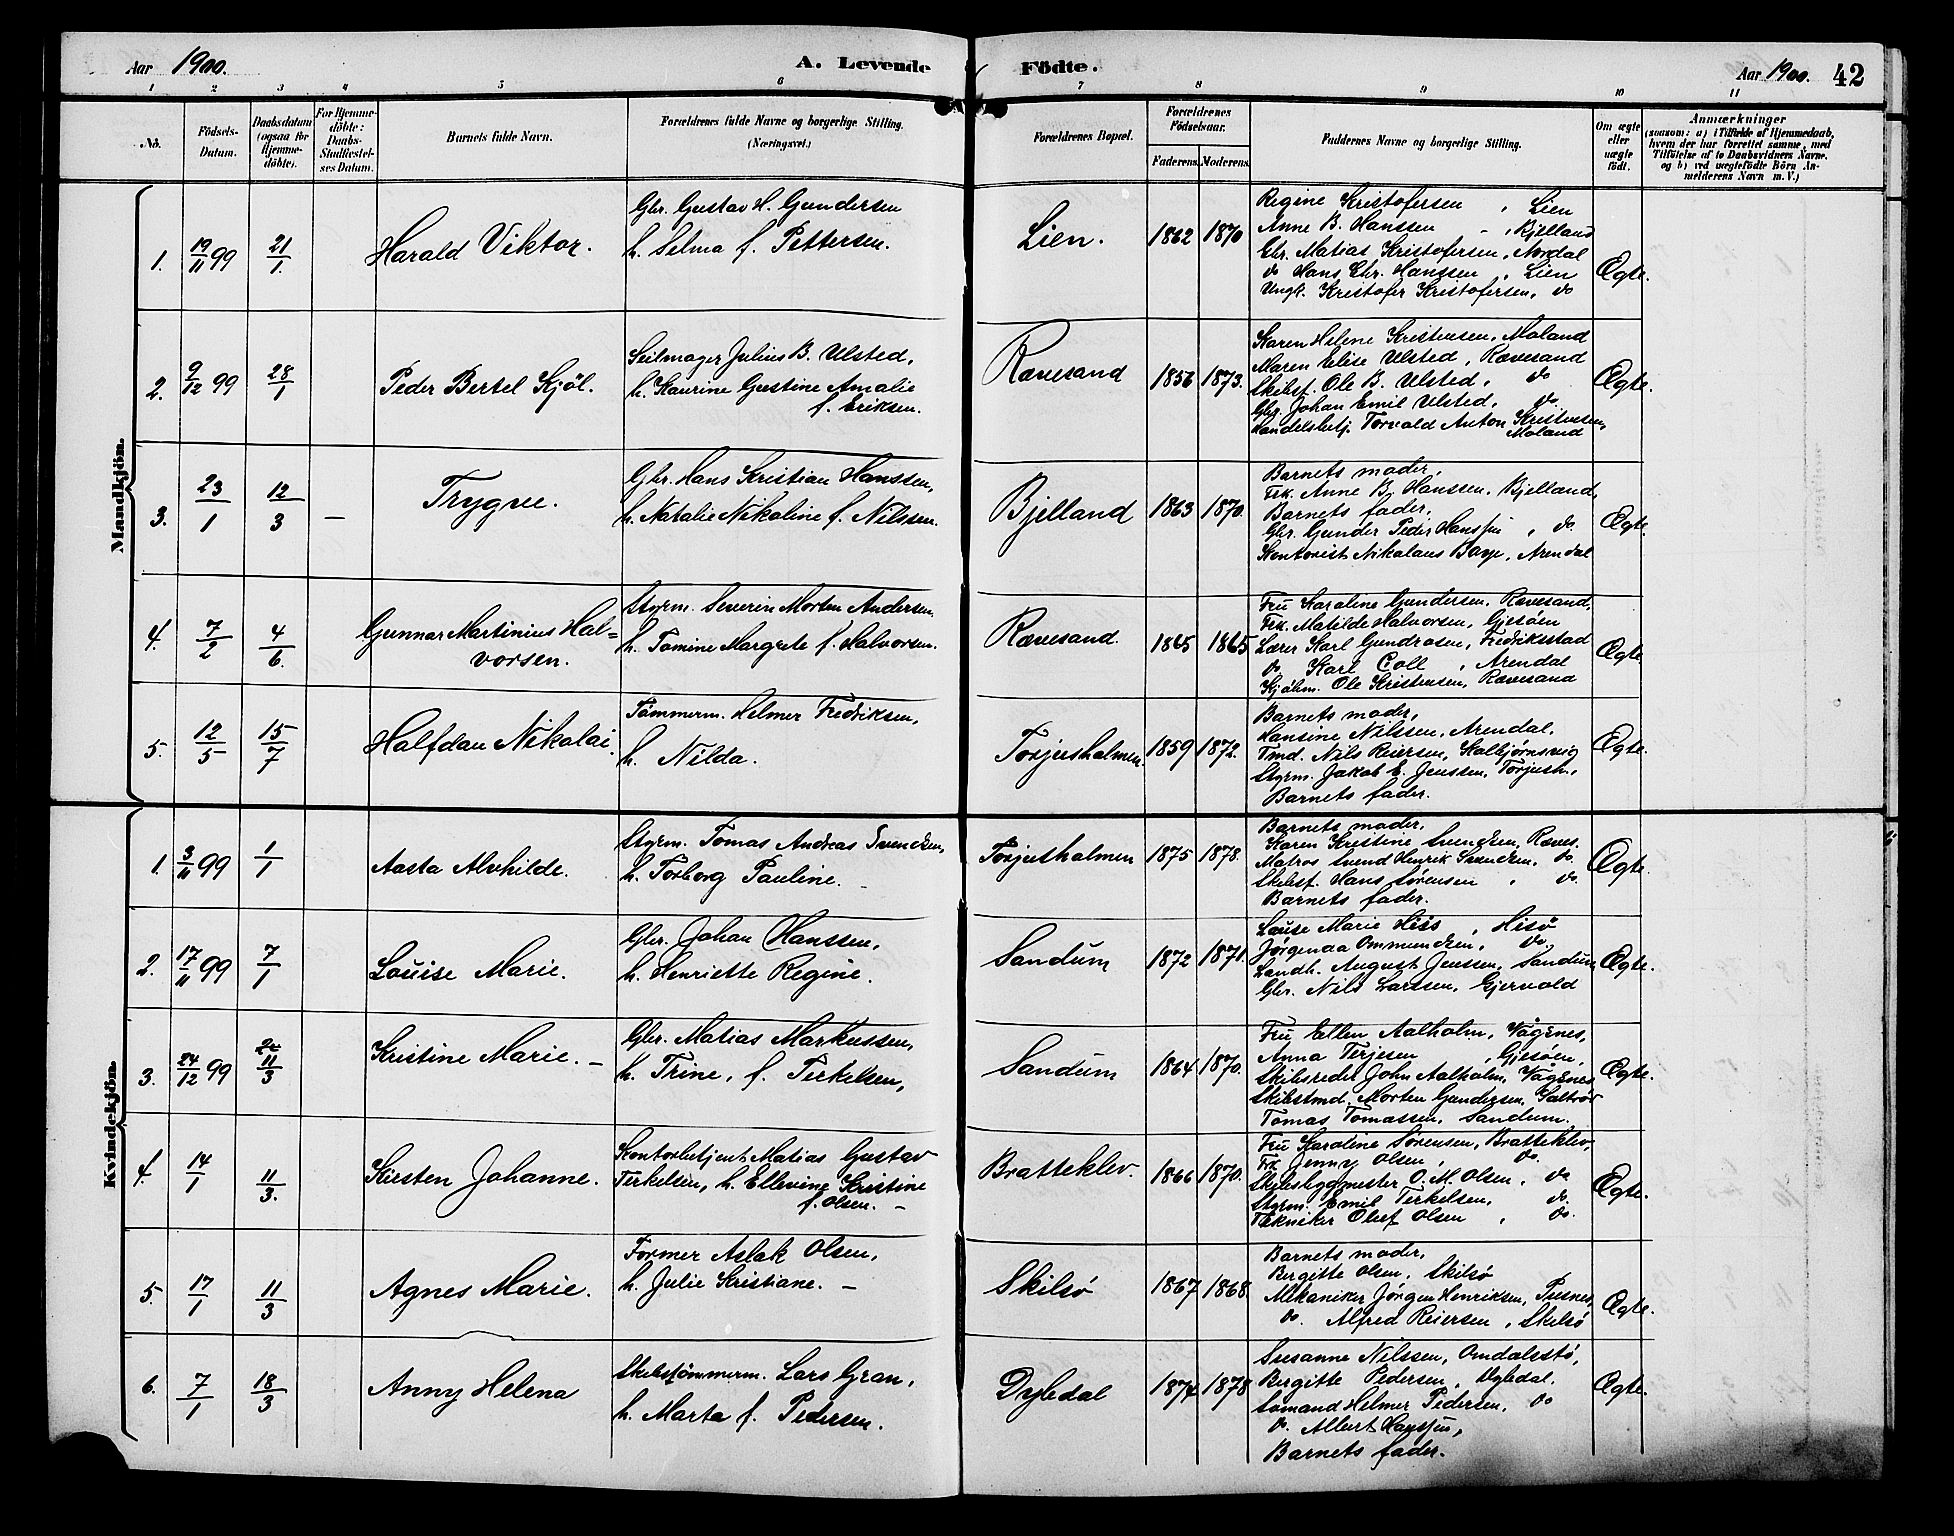 Aar 1900.
A. Levende Fødte.
Aar 1900. 42
1 2 3 4 5 6 7 8 9 10 11
No.
Fødsels-Datum.
Daabsdatum (ogsaa for Hjemme-døbte).
For Hjemme-døbte: Daabs-Stadfæstel-ses Datum.
Barnets fulde Navn.
Forældrenes fulde Navne og borgerlige Stilling.
(Næringsvei.)
Forældrenes Bopæl.
Forældrenes Fødselsaar.
Faderens. Moderens.
Faddernes Navne og borgerlige Stilling.
Om ægte eller uægte født.
Anmærkninger
(saasom: a) i Tilfælde af Hjemmedaab,
hvem der har forrettet samme, med
Tilføielse af to Daabsvidners Navne.
og b) ved uægtefødte Børn An-
melderens Navn m. V.)
Mandkjøn.
1. 19/11 99 21/1. Harald Viktor.
Gbr. Gustav H. Gundersen
h. Selma f. Pettersen.
Lien. 1862 1870
Regine Kristofersen, Lien
Anne B. Hanssen - , Bjelland
Gbr. Matias Kristofersen, Nordal
do Hans Chr. Hanssen, Lien
Ungk. Kristofer Kristofersen, do
Ægte.
2. 9/12 99 28/1 Peder Bertel Kjøl.
Seilmager Julius B. Ulsted,
h. Kaurine Gustine Amalie
f. Eriksen.
Rævesand 1856 1873.
Karen Helene Kristensen, Moland
Maren Elise Ulsted, Rævesand
Skibsf. Ole B. Ulsted, do
Gbr. Johan Emil Ulsted, do.
Handelsbetj. Torvald Anton Kristensen,
Moland
Ægte.
3. 23/1 12/3 — Trygve.
Gbr. Hans Kristian Hanssen,
h. Natalie Nikoline f. Nilssen.
Bjelland 1863 1870.
Barnets moder,
Frk. Anne B. Hanssen, Bjelland,
Barnets fader,
Gbr. Gunder Peder Hanssen, do.
Kontorist Nikolaus Barye, Arendal
Ægte.
4. 7/2 4/6. Gunnar Martinius Hal=
vorsen.
Styrm. Severin Morten Andersen
h. Tomine Margrete f. Halvorsen.
Rævesand. 1865 1865
Fru Karoline Gundersen, Rævesand,
Frk. Matilde Halvorsen, Gjesøen
Lærer Karl Gundrosen, Fredriksstad
do Karl Coll, Arendal
Kjøbm. Ole Kristensen, Rævesand
Ægte
5. 12/5 15/7 Halfdan Nikolai.
Tømmerm. Helmer Fredriksen,
h. Nilda.
Torjusholmen. 1859 1872.
Barnets moder,
Hansine Nilssen, Arendal,
Tmd. Nils Reiersen, Kolbjørnsvig
Styrm. Jakob E. Jenssen, Torjush.,
Barnets fader.
Ægte.
Kvindekjøn.
1. 3/11 99 1/1 Aasta Alvhilde.
Styrm. Tomas Andreas Svendsen,
h. Torborg Pauline. -
Torjusholmen 1875 1878.
Barnets moder,
Karen Kristine Svendsen, Ræves.
Matros Svend Henrik Svendsen, do.
Skibsf. Hans Sørensen, do.
Barnets fader.
Ægte.
2. 17/11 99 7/1 Louise Marie.
Gbr. Johan Hanssen,
h. Henriette Regine.
Sandum 1872 1871.
Louise Marie Hiis, Hisø
Jørgenda Ommundsen, do.
Landh. August Jenssen, Sandum
Gbr. Nils Larssen, Gjervold
Ægte.
3. 24/12 99 11/3 Kristine Marie. -
Gbr. Matias Markussen,
h. Trine, f. Terkelsen,
Sandum 1864 1870.
Fru Ellen Aalholm, Vågenes,
Anna Terjesen, Gjesøen,
Skibsreder John Aalholm, Vågenes
Skibstmd. Morten Gundersen, Saltrød
Tomas Tomassen, Sandum.
Ægte.
4. 14/1 11/3. Kirsten Johanne.
Kontorbetjent Matias Gustav
Terkelsen, h. Ellevine Kristine
f. Olsen. -
Bratteklev. 1866 1870.
Fru Karoline Sørensen, Bratteklev,
Fr. Jenny Olsen, do.
Skibsbyggmester O. M. Olsen, do
Styrm. Emil Terkelsen, do.
Tekniker Oluf Olsen, do.
Ægte.
5. 17/1 11/3 Agnes Marie.
Former Aslak Olsen,
h. Julie Kristiane. -
Skilsø 1867 1868.
Barnets moder,
Birgitte Olsen, Skilsø
Mekaniker Jørgen Henriksen, Pusnes,
do. Alfred Reiersen, Skilsø
Ægte.
6. 7/1 18/3 Anny Helena
Skibstømmerm. Lars Gran,
h. Marta f. Pedersen.
Dybedal 1874 1878
Susanne Nilssen, Omdalsstø,
Birgitte Pedersen, Dybedal.
Sømand Helmer Pedersen, do
do. Albert Hanssen,
Barnets fader.
Ægte.